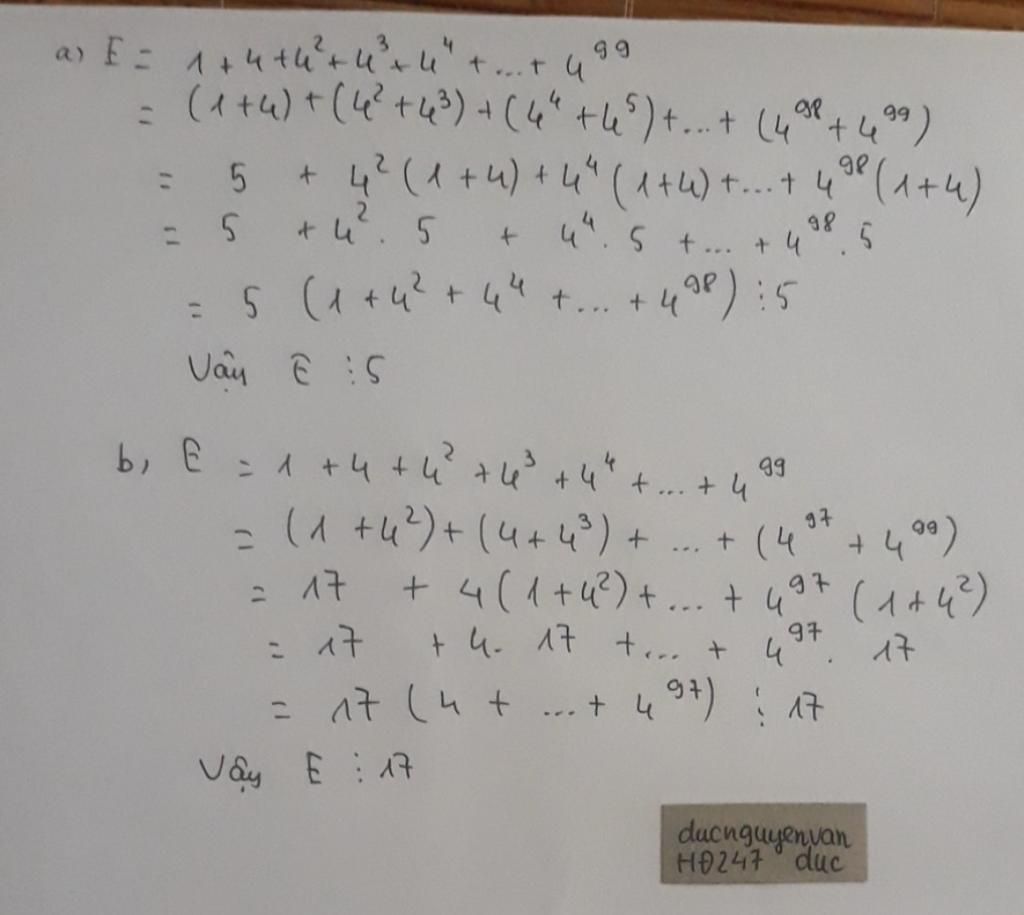 a) E = 1 + 4 + 4² + 4³ + 4⁴ + ... + 4⁹⁹
= (1+4) + (4² + 4³) + (4⁴ + 4⁵) + ... + (4⁹⁸ + 4⁹⁹)
= 5 + 4² (1 + 4) + 4⁴ (1+4) + ... + 4⁹⁸ (1+4)
= 5 + 4² . 5 + 4⁴ . 5 + ... + 4⁹⁸ . 5
= 5 (1 + 4² + 4⁴ + ... + 4⁹⁸) ⋮ 5
Vậy E ⋮ 5
b, E = 1 + 4 + 4² + 4³ + 4⁴ + ... + 4⁹⁹
= (1 + 4²) + (4 + 4³) + ... + (4⁹⁷ + 4⁹⁹)
= 17 + 4 (1 + 4²) + ... + 4⁹⁷ (1 + 4²)
= 17 + 4. 17 + ... + 4⁹⁷ . 17
= 17 (4 + ... + 4⁹⁷) ⋮ 17
Vậy E ⋮ 17
ducnguyenvan
HĐ247 duc